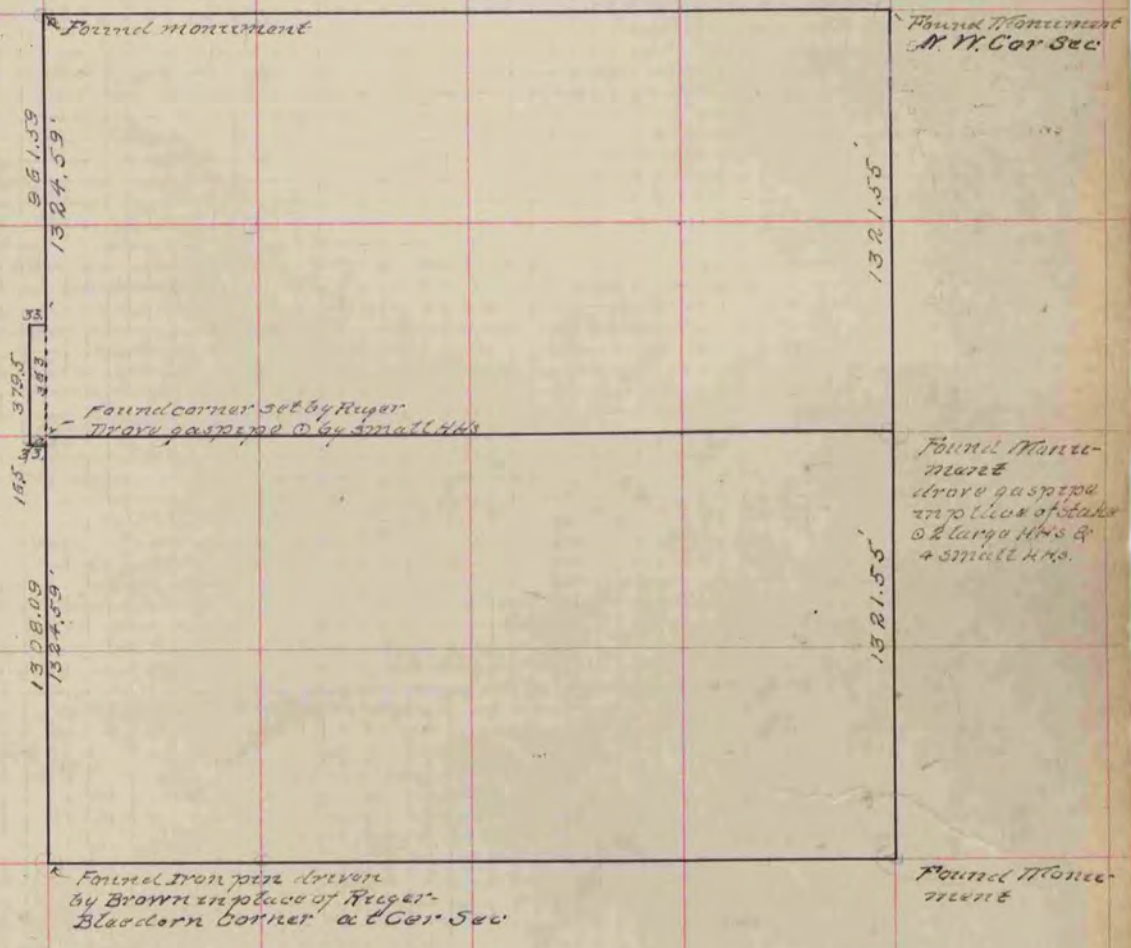 Found monument
Found Monument
N. W. Cor Sec
961.59
1324.59'
1321.55'
33.
379.5
363.
Found corner set by Ruger
Drove gaspipe ⊙ by small HHs
33.
16.5
Found Monu-
ment
drove gaspipe
in place of stake
⊙ 2 large HHs &
4 small HHs.
1308.09
1324.59'
1321.55'
Found Iron pin driven
by Brown in place of Ruger-
Bleedorn Corner at Cor Sec
Found Monu-
ment